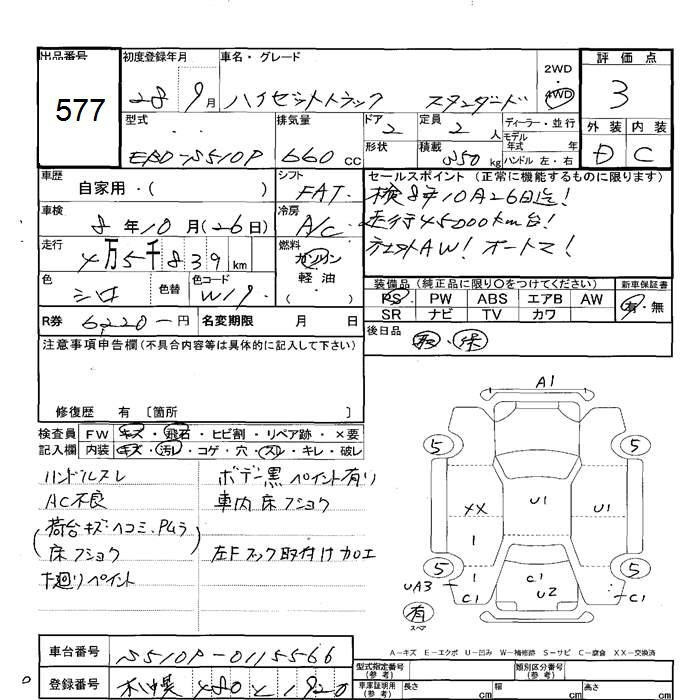 出品番号
577
初度登録年月
28 9月
車名・グレード
ハイゼットトラック スタンダード
2WD
4WD
評価点
3
外装 内装
D C
型式
EBD-S510P
排気量
660 cc
ドア
2
定員
2 人
ディーラー・並行
モデル
年式 年
形状
積載
350 kg
ハンドル 左・右
車歴
自家用・( )
シフト
FAT
セールスポイント (正常に機能するものに限ります)
検8年10月26日迄!
走行45000km台!
社外AW! オートマ!
車検
8年10月(26日)
冷房
A/C
走行
4万5千839 km
燃料
ガソリン
軽油
( )
色
シロ
色替
色コード
W19
装備品 (純正品に限り〇をつけてください)
新車保証書
PS PW ABS エアB AW
SR ナビ TV カワ
有・無
R券 6,220-円
名変期限 月 日
後日品
取・保
注意事項申告欄(不具合内容等は具体的に記入して下さい)
修復歴 有 〔箇所 〕
検査員
記入欄
FW キズ・飛石・ヒビ割・リペア跡・×要
内装 キズ・汚レ・コゲ・穴・スレ・キレ・破レ
ハンドルスレ
AC不良
荷台キズ・ヘコミ・
床フショク
下廻りペイント
ボデー黒ペイント有り
車内床フショク
左Fフック取付け加工
A1
5 5
XX U1 U1
1
5 5
UA3 1 C1
C1 U2 C1
有
スペア
A−キズ E−エクボ U−凹み W−補修跡 S−サビ C−腐食 XX−交換済
車台番号
S510P-0115566
登録番号
札幌 480 と 1920
型式指定番号
(参考)
類別区分番号
(参考)
車庫証明用
(参考)
長さ cm
幅 cm
高さ cm